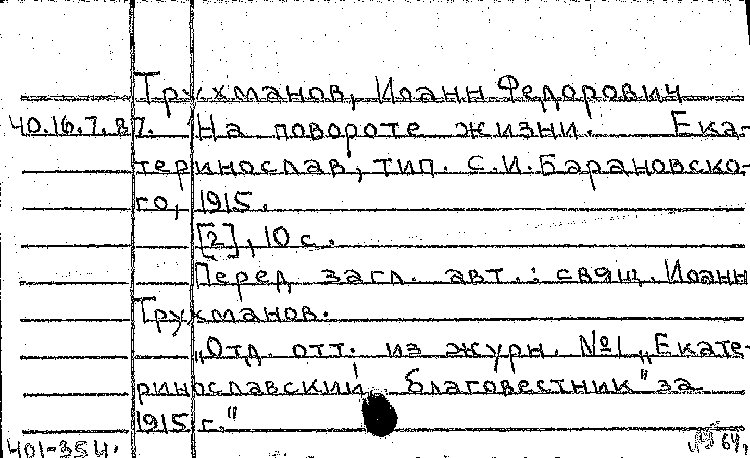 Трухманов, Иоанн Федорович
40.16.7.87. На повороте жизни. Ека-
теринослав, тип. С.И.Барановско-
го, 1915.
[2], 10 с.
Перед загл. авт.: свящ. Иоанн
Трухманов.
„Отд. отт. из журн. №1 „Екате-
ринославский благовестник" за
1915 г."
401-354.
64,